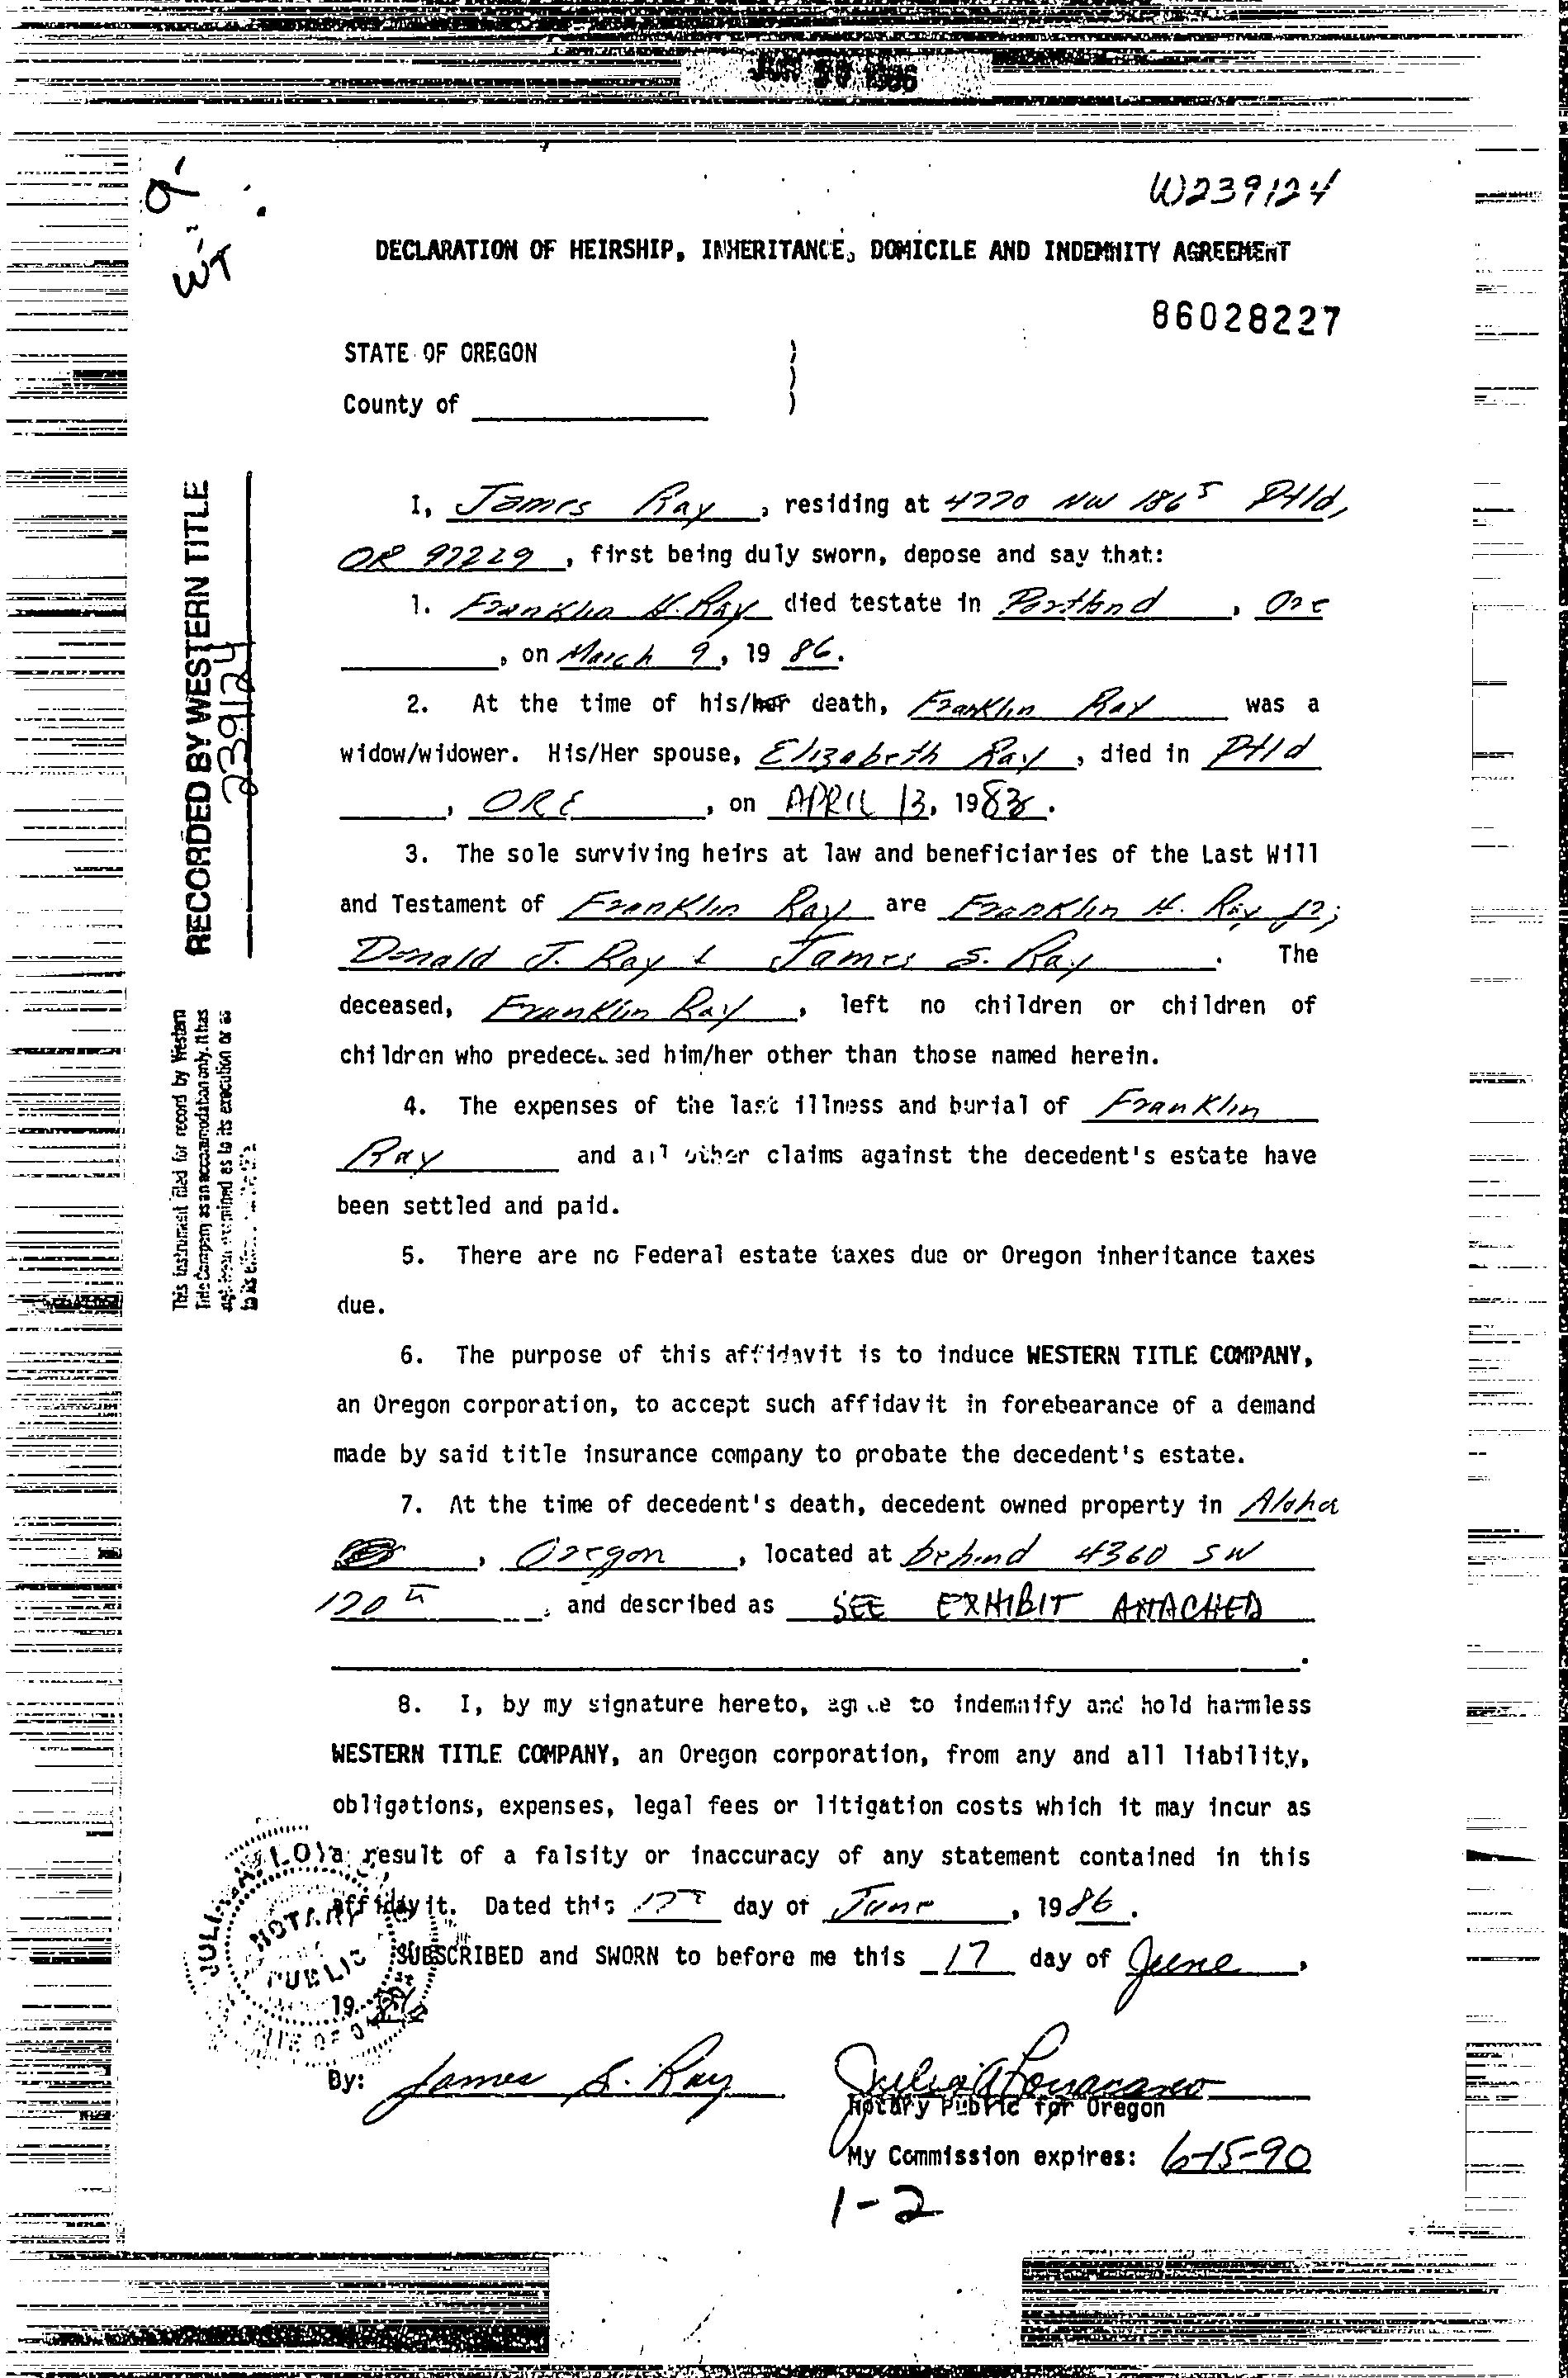 W239124
WT
DECLARATION OF HEIRSHIP, INHERITANCE, DOMICILE AND INDEMNITY AGREEMENT
86028227
STATE OF OREGON )
)
County of ____________ )
RECORDED BY WESTERN TITLE
239124
This instrument filed for record by Western
Title Company as an accommodation only. It has
not been examined as to its execution or as
I, James Ray, residing at 4770 NW 186 Ptld,
OR 97229, first being duly sworn, depose and say that:
1. Franklin H. Ray died testate in Portland, Ore
, on March 9, 19 86.
2. At the time of his/her death, Franklin Ray was a
widow/widower. His/Her spouse, Elizabeth Ray, died in Ptld
, ORE, on APRIL 13, 1983.
3. The sole surviving heirs at law and beneficiaries of the Last Will
and Testament of Franklin Ray are Franklin H. Ray Jr;
Donald J. Ray & James S. Ray. The
deceased, Franklin Ray, left no children or children of
children who predeceased him/her other than those named herein.
4. The expenses of the last illness and burial of Franklin
Ray and all other claims against the decedent's estate have
been settled and paid.
5. There are no Federal estate taxes due or Oregon inheritance taxes
due.
6. The purpose of this affidavit is to induce WESTERN TITLE COMPANY,
an Oregon corporation, to accept such affidavit in forebearance of a demand
made by said title insurance company to probate the decedent's estate.
7. At the time of decedent's death, decedent owned property in Aloha
, Oregon, located at behind 4360 SW
170th, and described as SEE EXHIBIT ATTACHED
8. I, by my signature hereto, agree to indemnify and hold harmless
WESTERN TITLE COMPANY, an Oregon corporation, from any and all liability,
obligations, expenses, legal fees or litigation costs which it may incur as
a result of a falsity or inaccuracy of any statement contained in this
affidavit. Dated this 17th day of June, 1986.
SUBSCRIBED and SWORN to before me this 17 day of June,
19 86
NOTARY PUBLIC
STATE OF
By: James S. Ray
Notary Public for Oregon
My Commission expires: 6-15-90
1-2